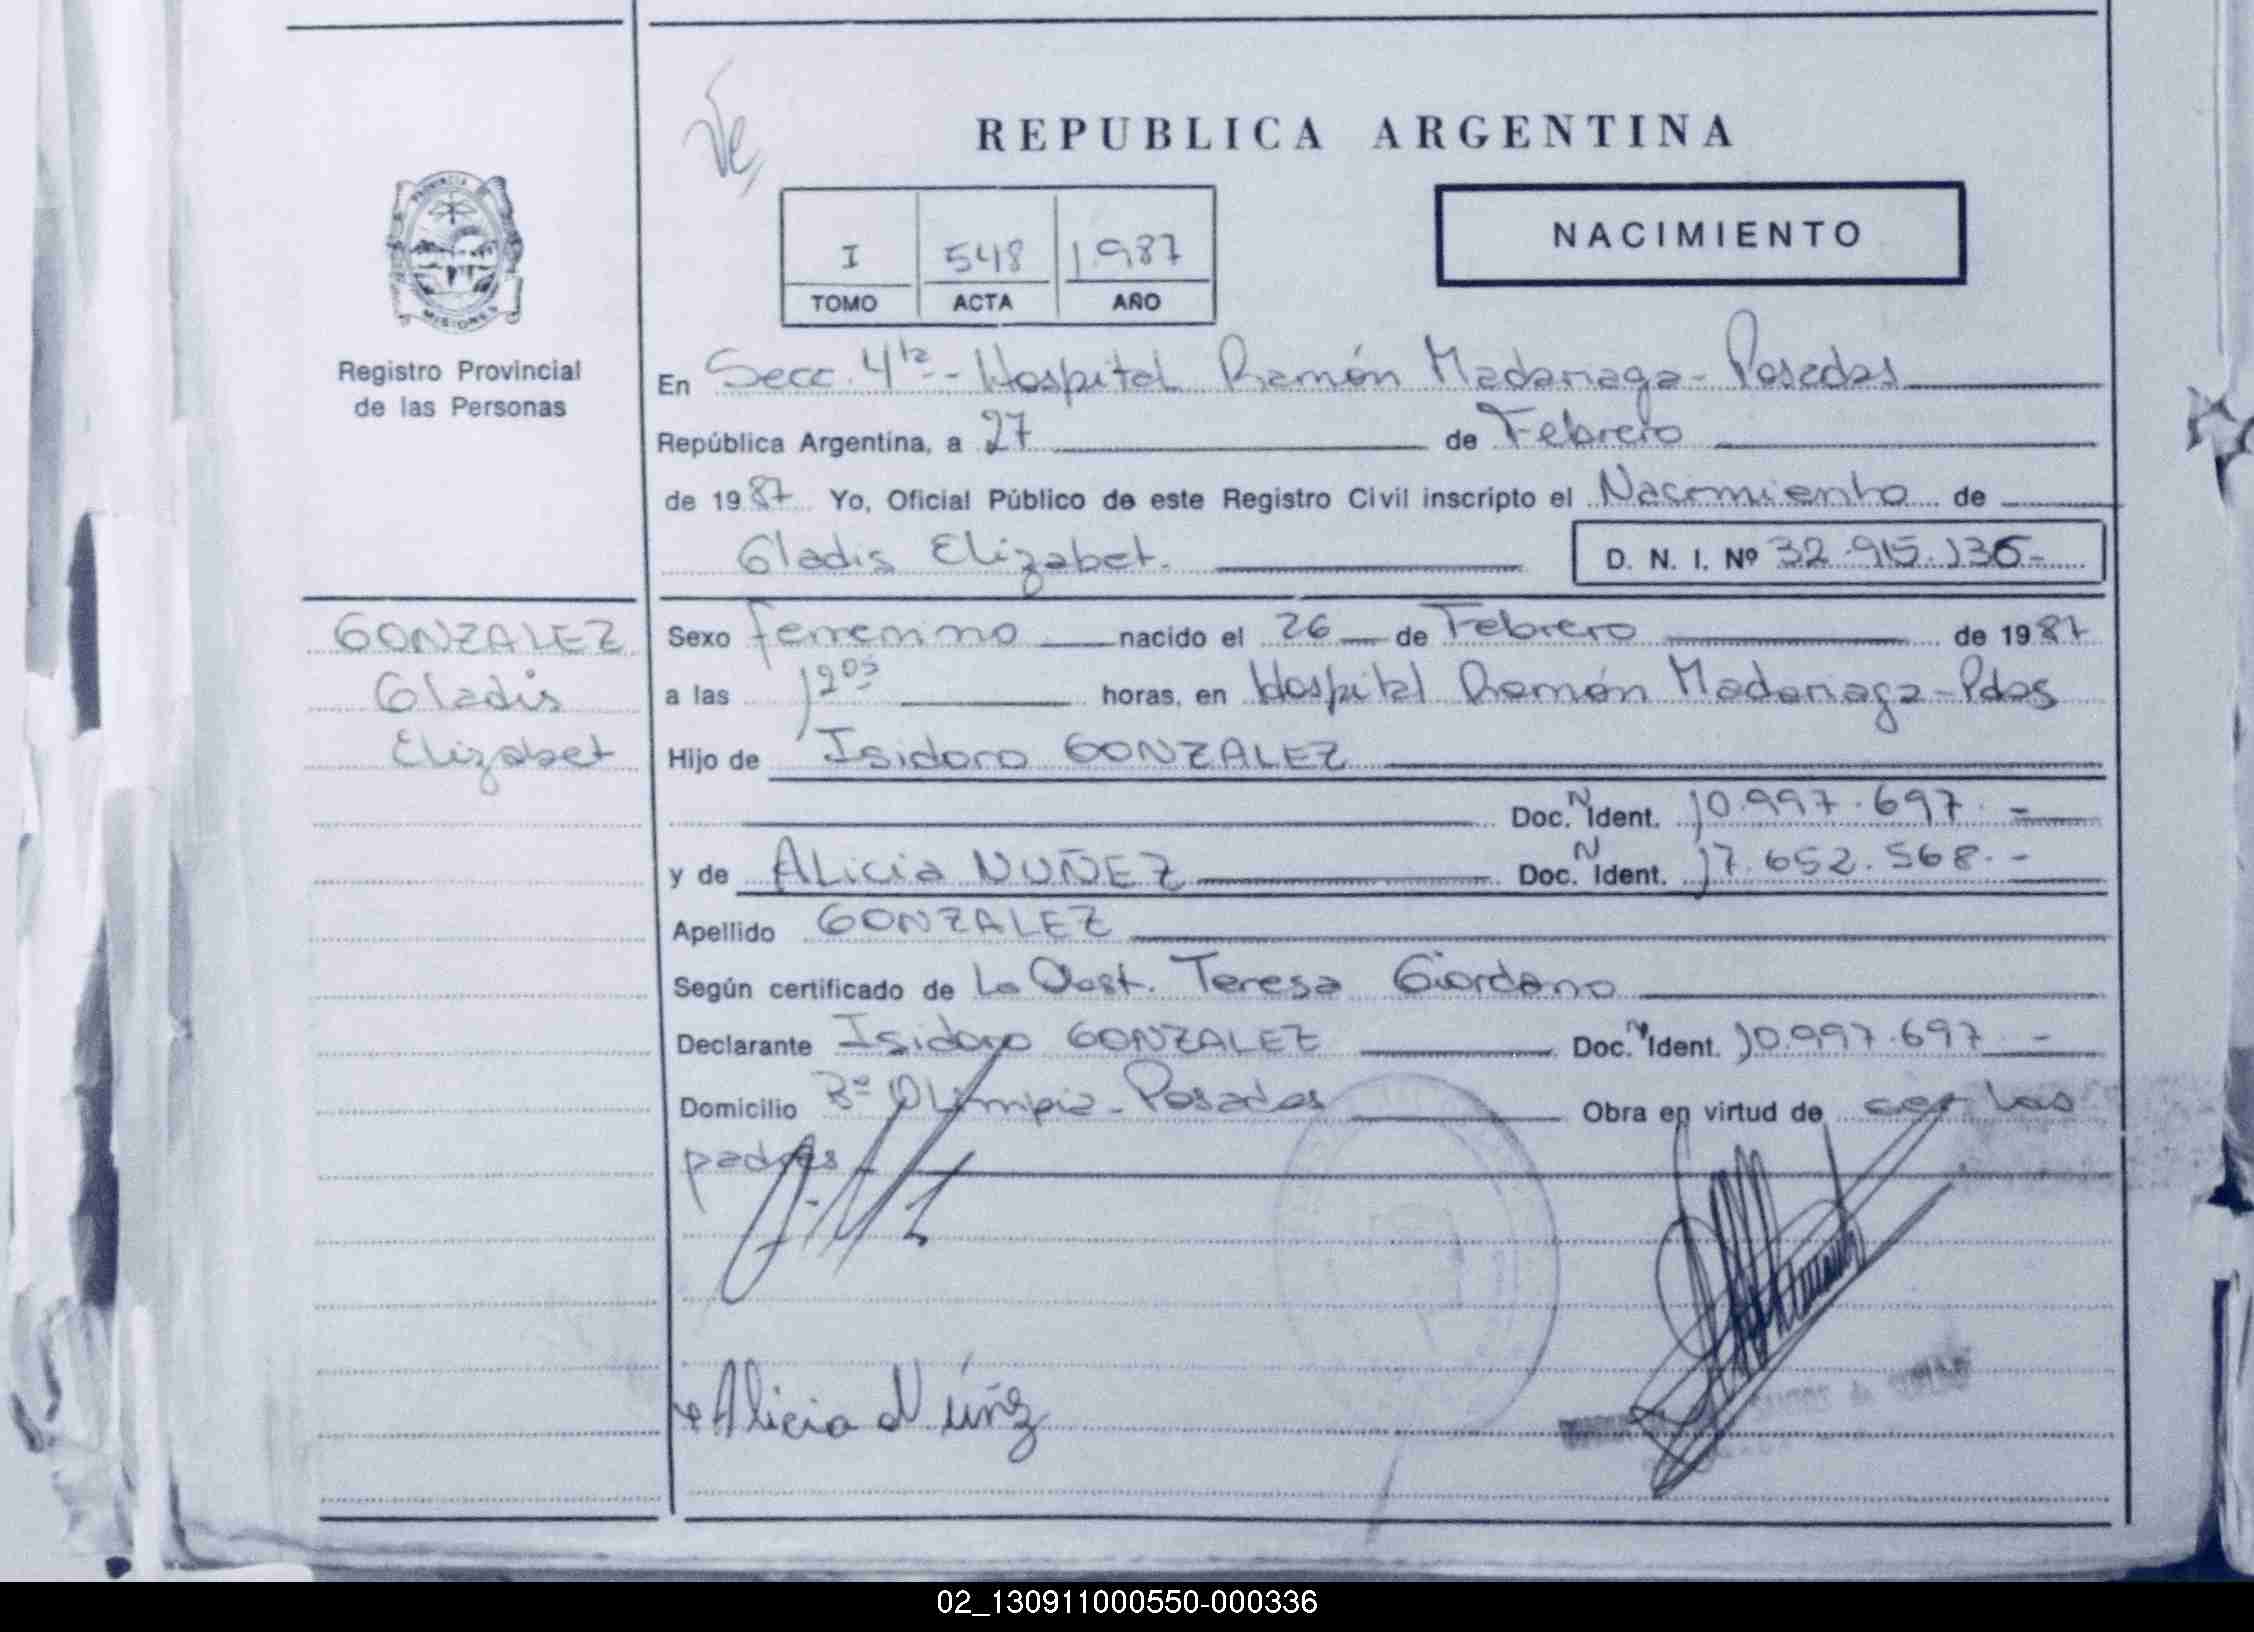 REPUBLICA ARGENTINA
PROVINCIA
MISIONES
Registro Provincial
de las Personas
I 548 1.987
TOMO ACTA AÑO
NACIMIENTO
En Secc. 4ta - Hospital Ramón Madariaga - Posadas
República Argentina, a 27 de Febrero
de 1987 Yo, Oficial Público de este Registro Civil inscripto el Nacimiento de
Gladis Elizabet. D. N. I. Nº 32.915.136-
GONZALEZ
Gladis
Elizabet
Sexo femenino nacido el 26 de Febrero de 1987
a las 1205 horas, en Hospital Ramón Madariaga - Pdas
Hijo de Isidoro GONZALEZ
Doc. N Ident. 10.997.697.-
y de Alicia NUÑEZ Doc. N Ident. 17.652.568.-
Apellido GONZALEZ
Según certificado de La Obst. Teresa Giordano
Declarante Isidoro GONZALEZ Doc. N Ident. 10.997.697 -
Domicilio Bº Olimpia - Posadas Obra en virtud de ser los
padres -
Alicia Núñz
02_130911000550-000336